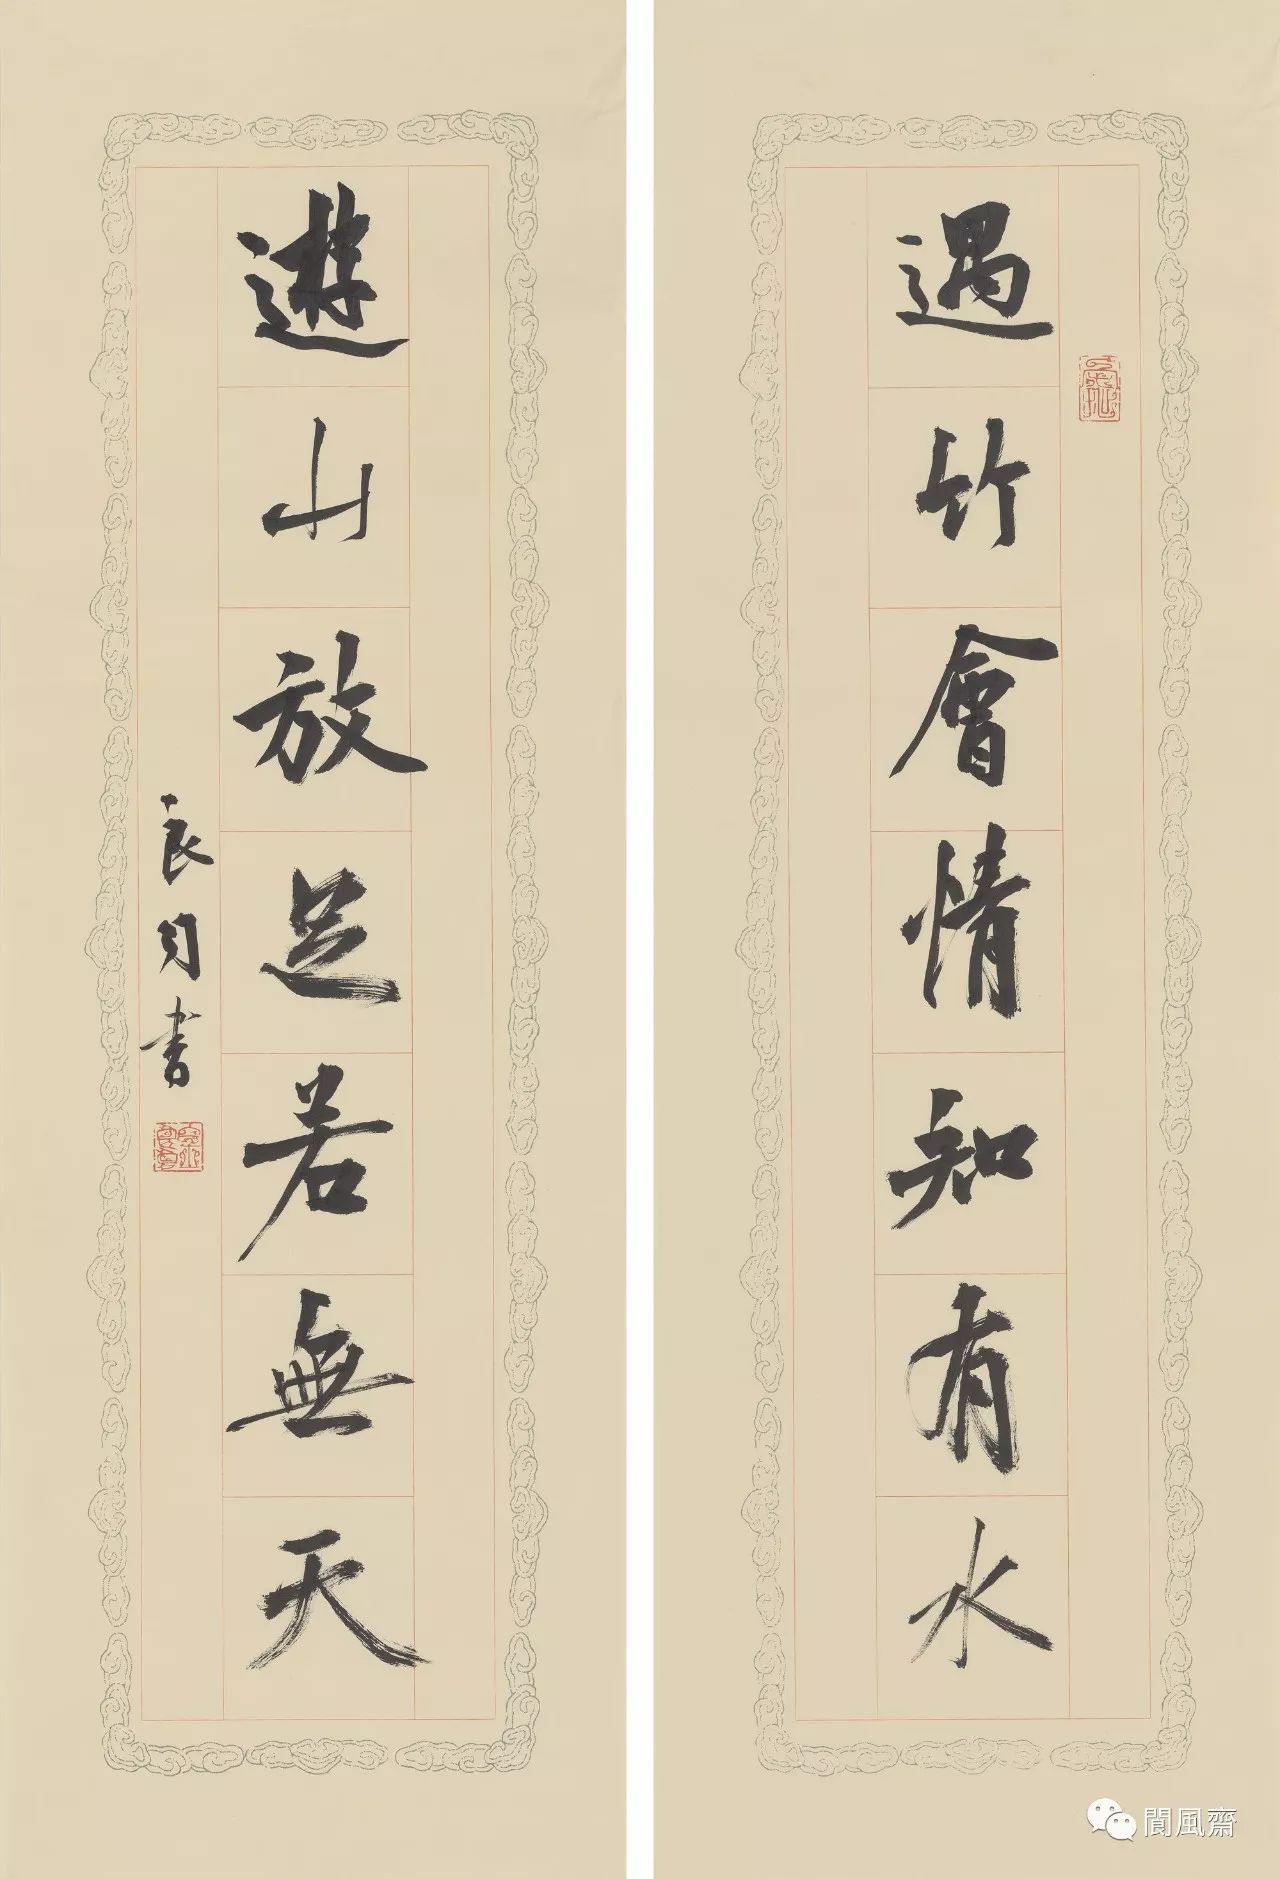 遇竹會情知有水
遊山放足若無天
良勻書
閬風齋